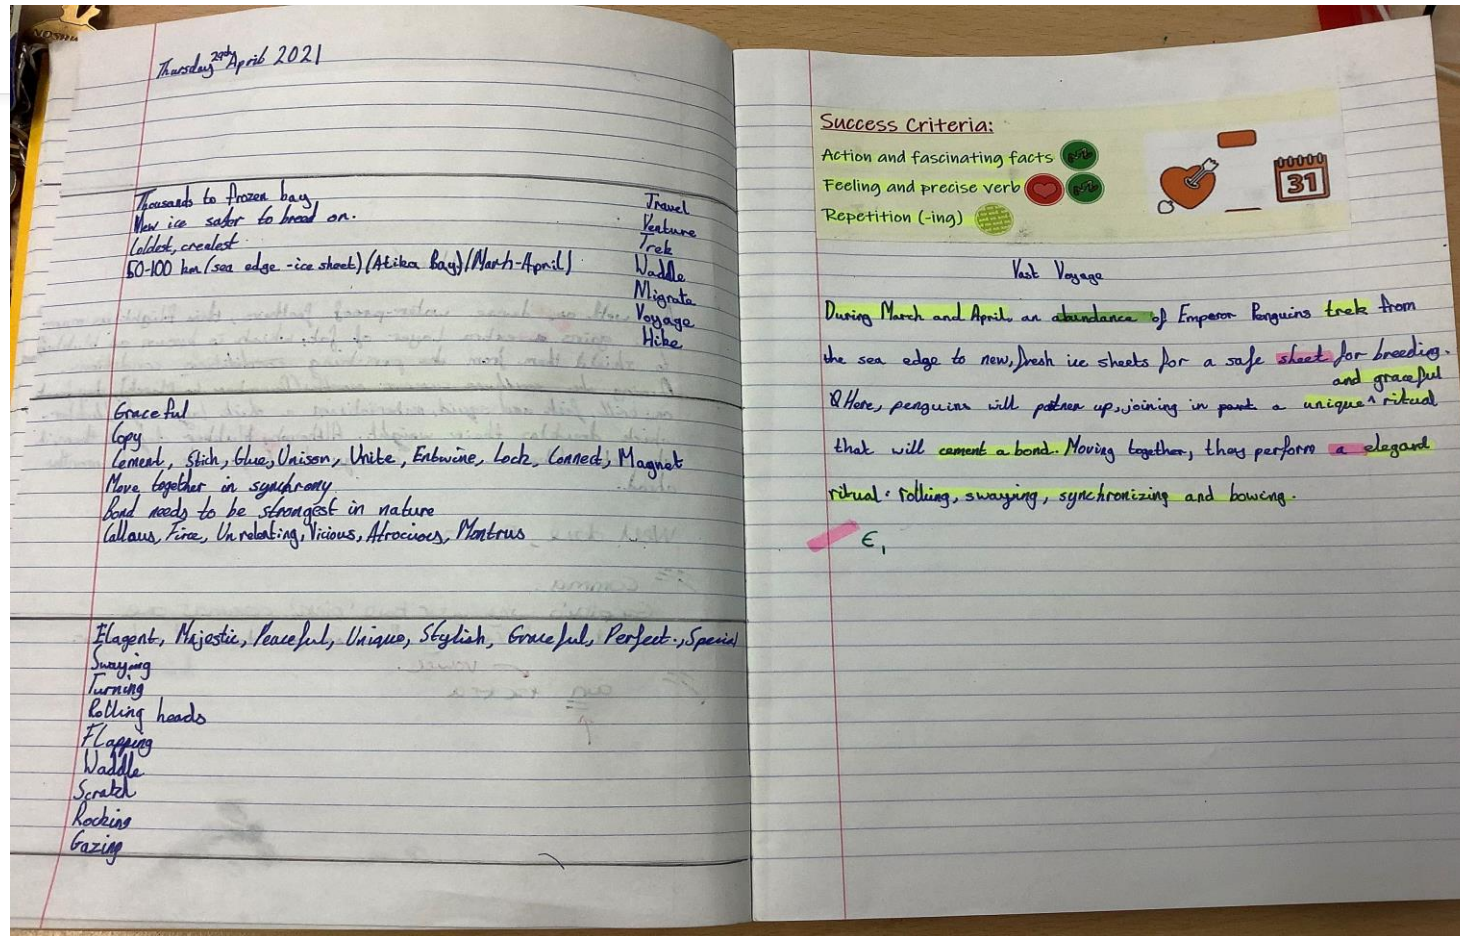 Thursday 29th April 2021
Thousands to frozen bay
New ice safer to breed on.
Coldest, cruelest
50-100 km (sea edge - ice sheet) (Atika Bay) (March-April)
Travel
Venture
Trek
Waddle
Migrate
Voyage
Hike
Graceful
Copy
Cement, Stich, Glue, Unison, Unite, Entwine, Lock, Connect, Magnet
Move together in synchrony
Bond needs to be strongest in nature
Callous, Firce, Unrelenting, Vicious, Atrocious, Montrus
Elagent, Majestic, Peaceful, Unique, Stylish, Graceful, Perfect., Special
Swaying
Turning
Rolling heads
Flapping
Waddle
Scratch
Rocking
Gazing
Success Criteria:
Action and fascinating facts
Feeling and precise verb
Repetition (-ing)
31
Vast Voyage
During March and April, an abundance of Emperor Penguins trek from
the sea edge to new, fresh ice sheets for a safe sheet for breeding.
and graceful
Here, penguins will partner up, joining in a unique ^ ritual
that will cement a bond. Moving together, they perform a elegard
ritual: rolling, swaying, synchronizing and bowing.
E,